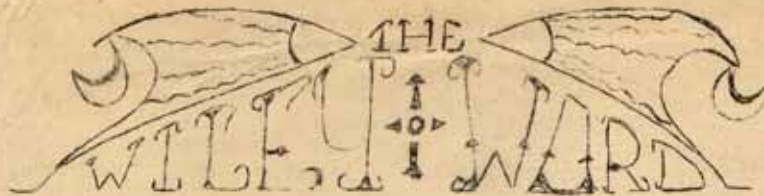 THE
WILEY WARD